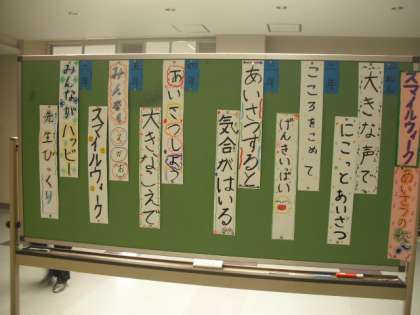 スマイルウィーク
あいさつの
大きな声で
にこっとあいさつ
こころをこめて
げんきいっぱい
あいさつすると
気合がはいる
あいさつしよう
大きなこえで
みんな
えがお
スマイルウィーク
みんながハッピー
先生びっくり